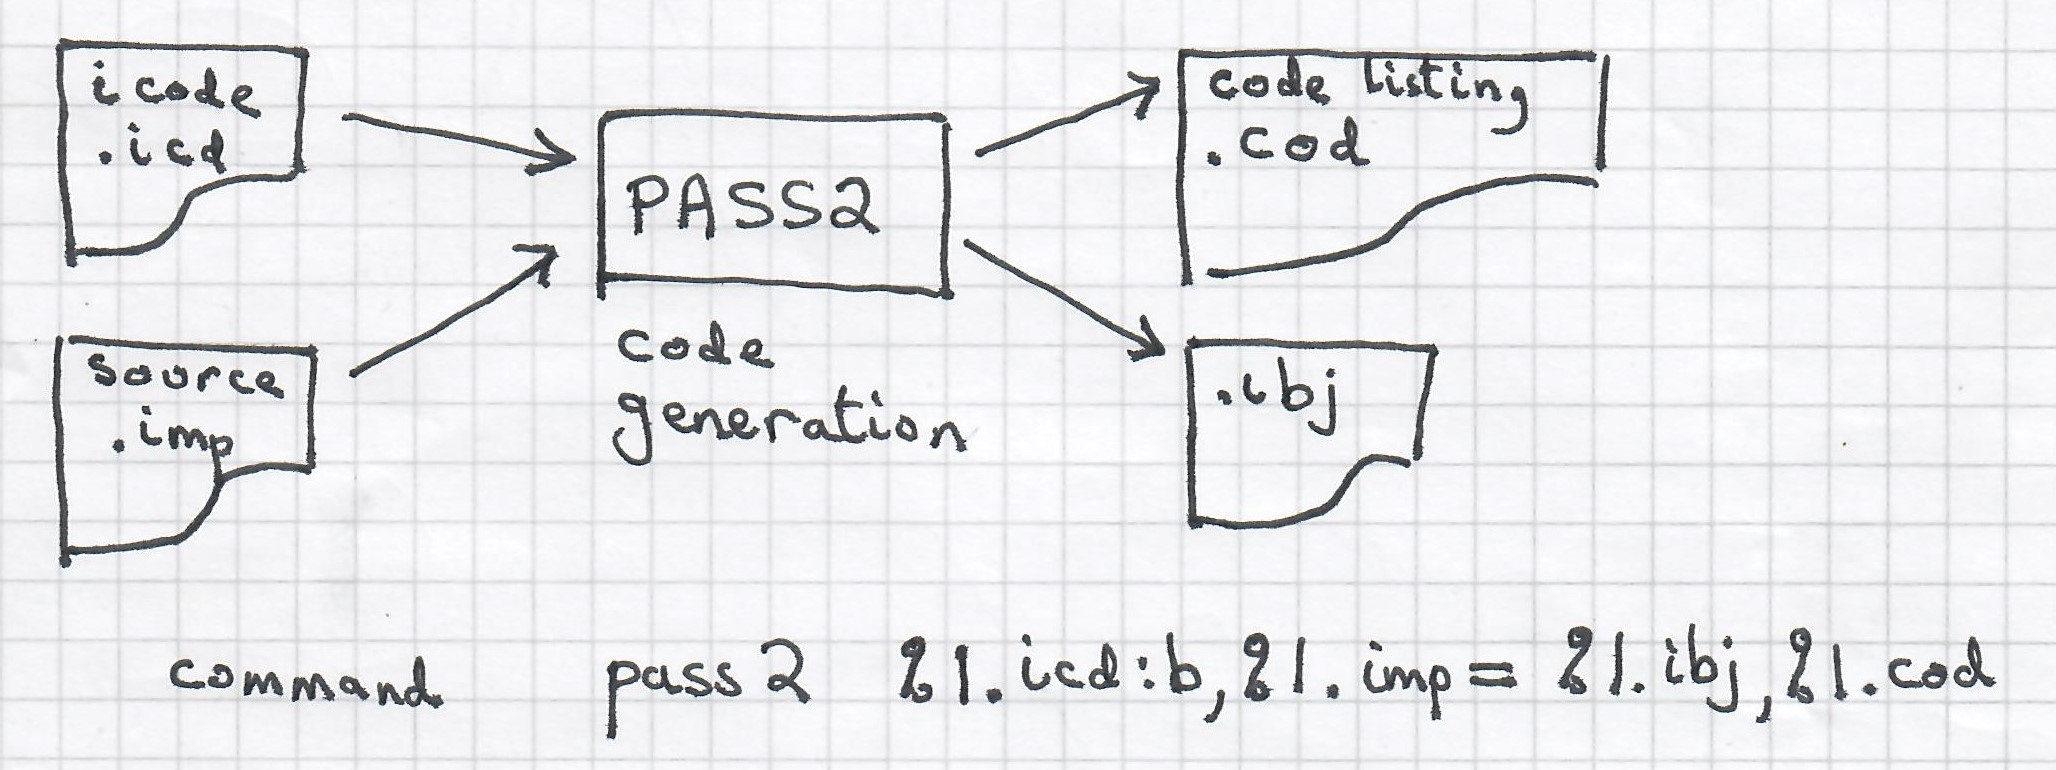 icode
.icd
source
.imp
PASS2
code
generation
code listing
.cod
.ibj
command pass2 %1.icd:b,%1.imp = %1.ibj,%1.cod